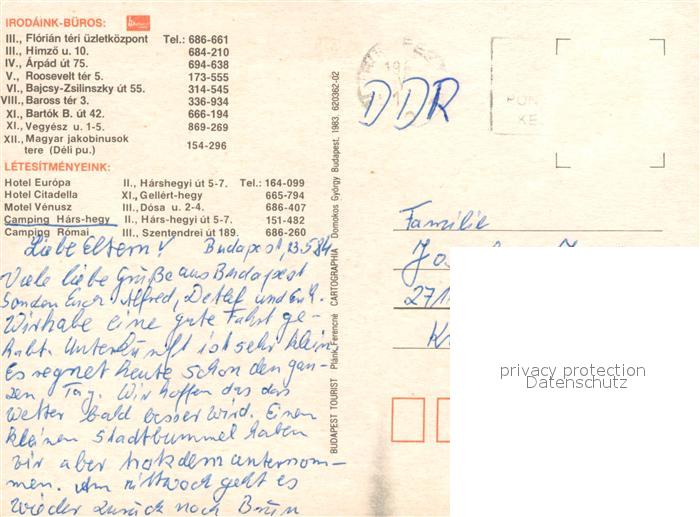 IRODÁINK-BÜROS:
III., Flórián téri üzletközpont Tel.: 686-661
III., Hímző u. 10. 684-210
IV., Árpád út 75. 694-638
V., Roosevelt tér 5. 173-555
VI., Bajcsy-Zsilinszky út 55. 314-545
VIII., Baross tér 3. 336-934
XI., Bartók B. út 42. 666-194
XI., Vegyész u. 1-5. 869-269
XII., Magyar jakobinusok
tere (Déli pu.) 154-296
LÉTESÍTMÉNYEINK:
Hotel Európa II., Hárshegyi út 5-7. Tel.: 164-099
Hotel Citadella XI., Gellért-hegy 665-794
Motel Vénusz III., Dósa u. 2-4. 686-407
Camping Hárs-hegy II., Hárs-hegyi út 5-7. 151-482
Camping Római III., Szentendrei út 189. 686-260
Liebe Eltern! Budapest, 13.5.84
Viele liebe Grüße aus Budapest
senden Euch Alfred, Detlef und
Wir habe eine gute Fahrt ge-
habt. Unterkunft ist sehr klein.
Es regnet heute schon den gan-
zen Tag. Wir hoffen das das
Wetter bald besser wird. Einen
kleinen Stadtbummel haben
wir aber trotzdem unternom-
men. Am Mittwoch geht es
wieder zurück nach Brün
BUDAPEST TOURIST Plánk Ferencné CARTOGRAPHIA Domokos György Budapest, 1983. 620362-02
DDR
Familie
271
privacy protection
Datenschutz